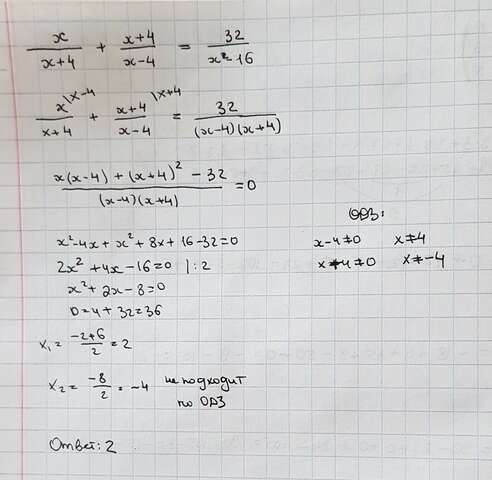 x/(x+4) + (x+4)/(x-4) = 32/(x²-16)
x\x-4/(x+4) + (x+4)\x+4/(x-4) = 32/((x-4)(x+4))
(x(x-4) + (x+4)² - 32)/((x-4)(x+4)) = 0
ОДЗ:
x²-4x+x²+8x+16-32=0
x-4≠0 x≠4
2x²+4x-16=0 |:2
x+4≠0 x≠-4
x²+2x-8=0
D=4+32=36
x₁= (-2+6)/2 = 2
x₂= -8/2 = -4 не подходит
по ОДЗ
Ответ: 2